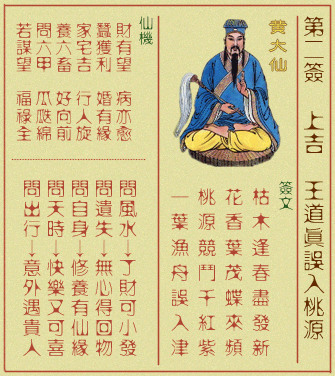 第二簽 上吉 王道眞誤入桃源
黄大仙
簽文
枯木逢春盡發新
花香葉茂蝶來頻
桃源競鬥千紅紫
一葉漁舟誤入津
仙機
財有望 病亦愈
蠶獲利 婚有緣
家宅吉 行人旋
養六畜 好向前
問六甲 瓜瓞綿
若謀望 福祿全
問風水→了財可小發
問遺失→無心得回物
問自身→修養有仙緣
問天時→快樂又可喜
問出行→意外遇貴人